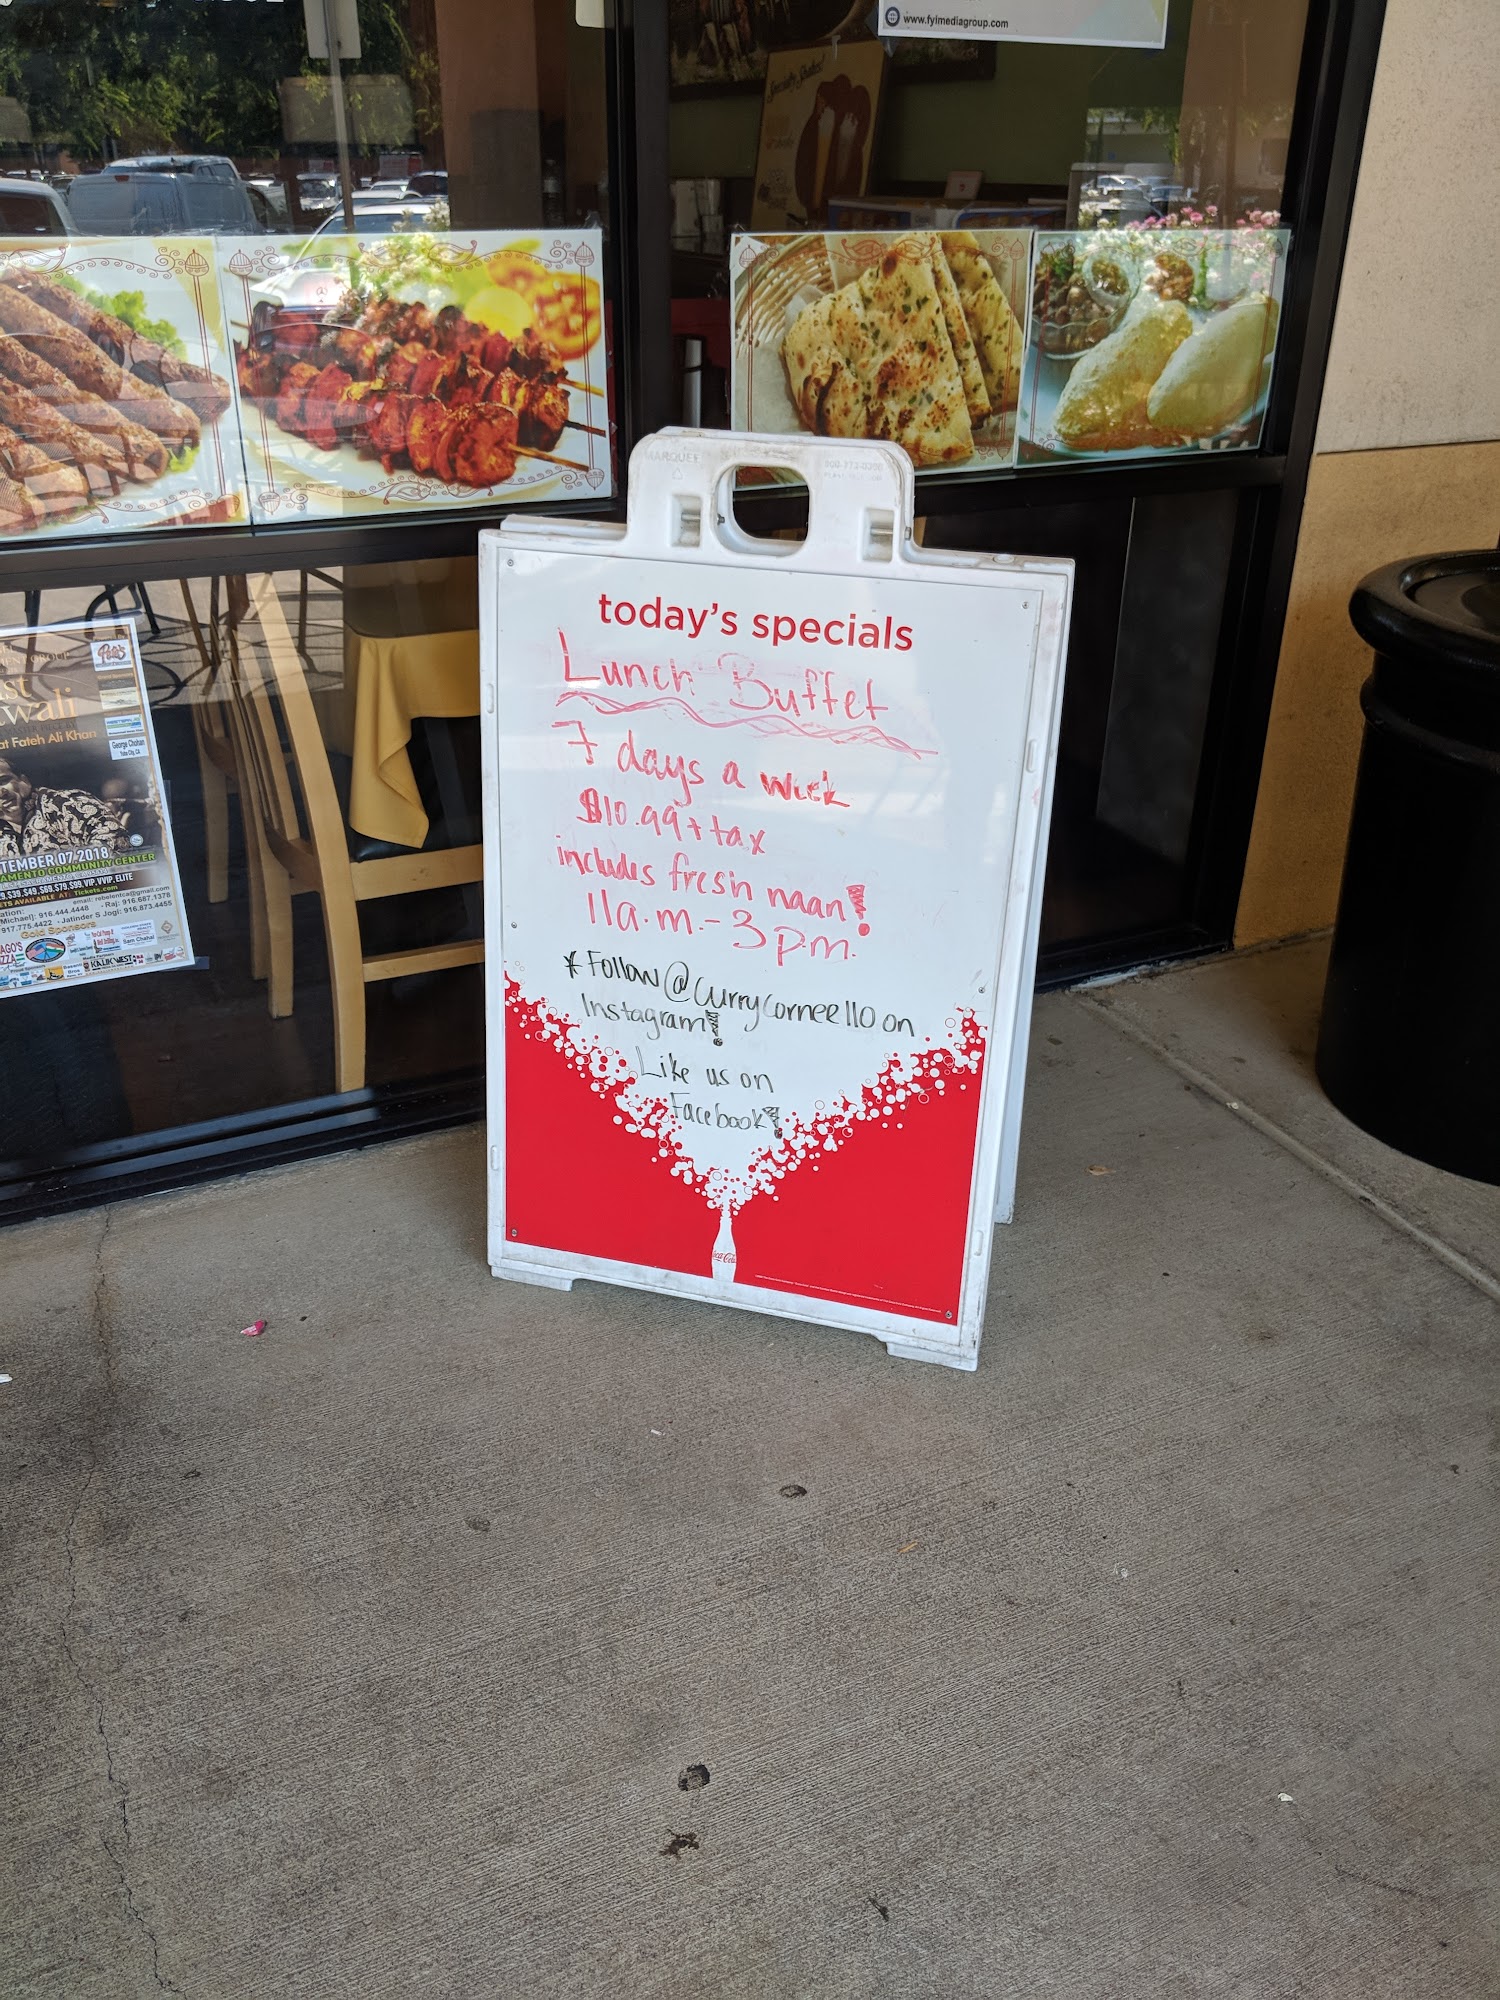 www.fyimediagroup.com
Specialty Shakes!
MARQUEE
today's specials
Lunch Buffet
7 days a week
$10.99 + tax
includes fresh naan!
11a.m.- 3p.m.
* Follow @currycorner110 on
Instagram!
Like us on
Facebook!
Coca-Cola
Pete's
George Chohan
Yuba City, CA
at Fateh Ali Khan
TEMBER 07 2018
AMENTO COMMUNITY CENTER
$39, $49, $69, $79, $99, VIP, VVIP, ELITE
ETS AVAILABLE AT: Tickets.com
email: rebelentca@gmail.com
Michael]: 916.444.4448 - Raj: 916.687.1378
917.775.4422 - Jatinder S Jogi: 916.873.4455
Gold Sponsors
Sam Chahal
KALIKWEST